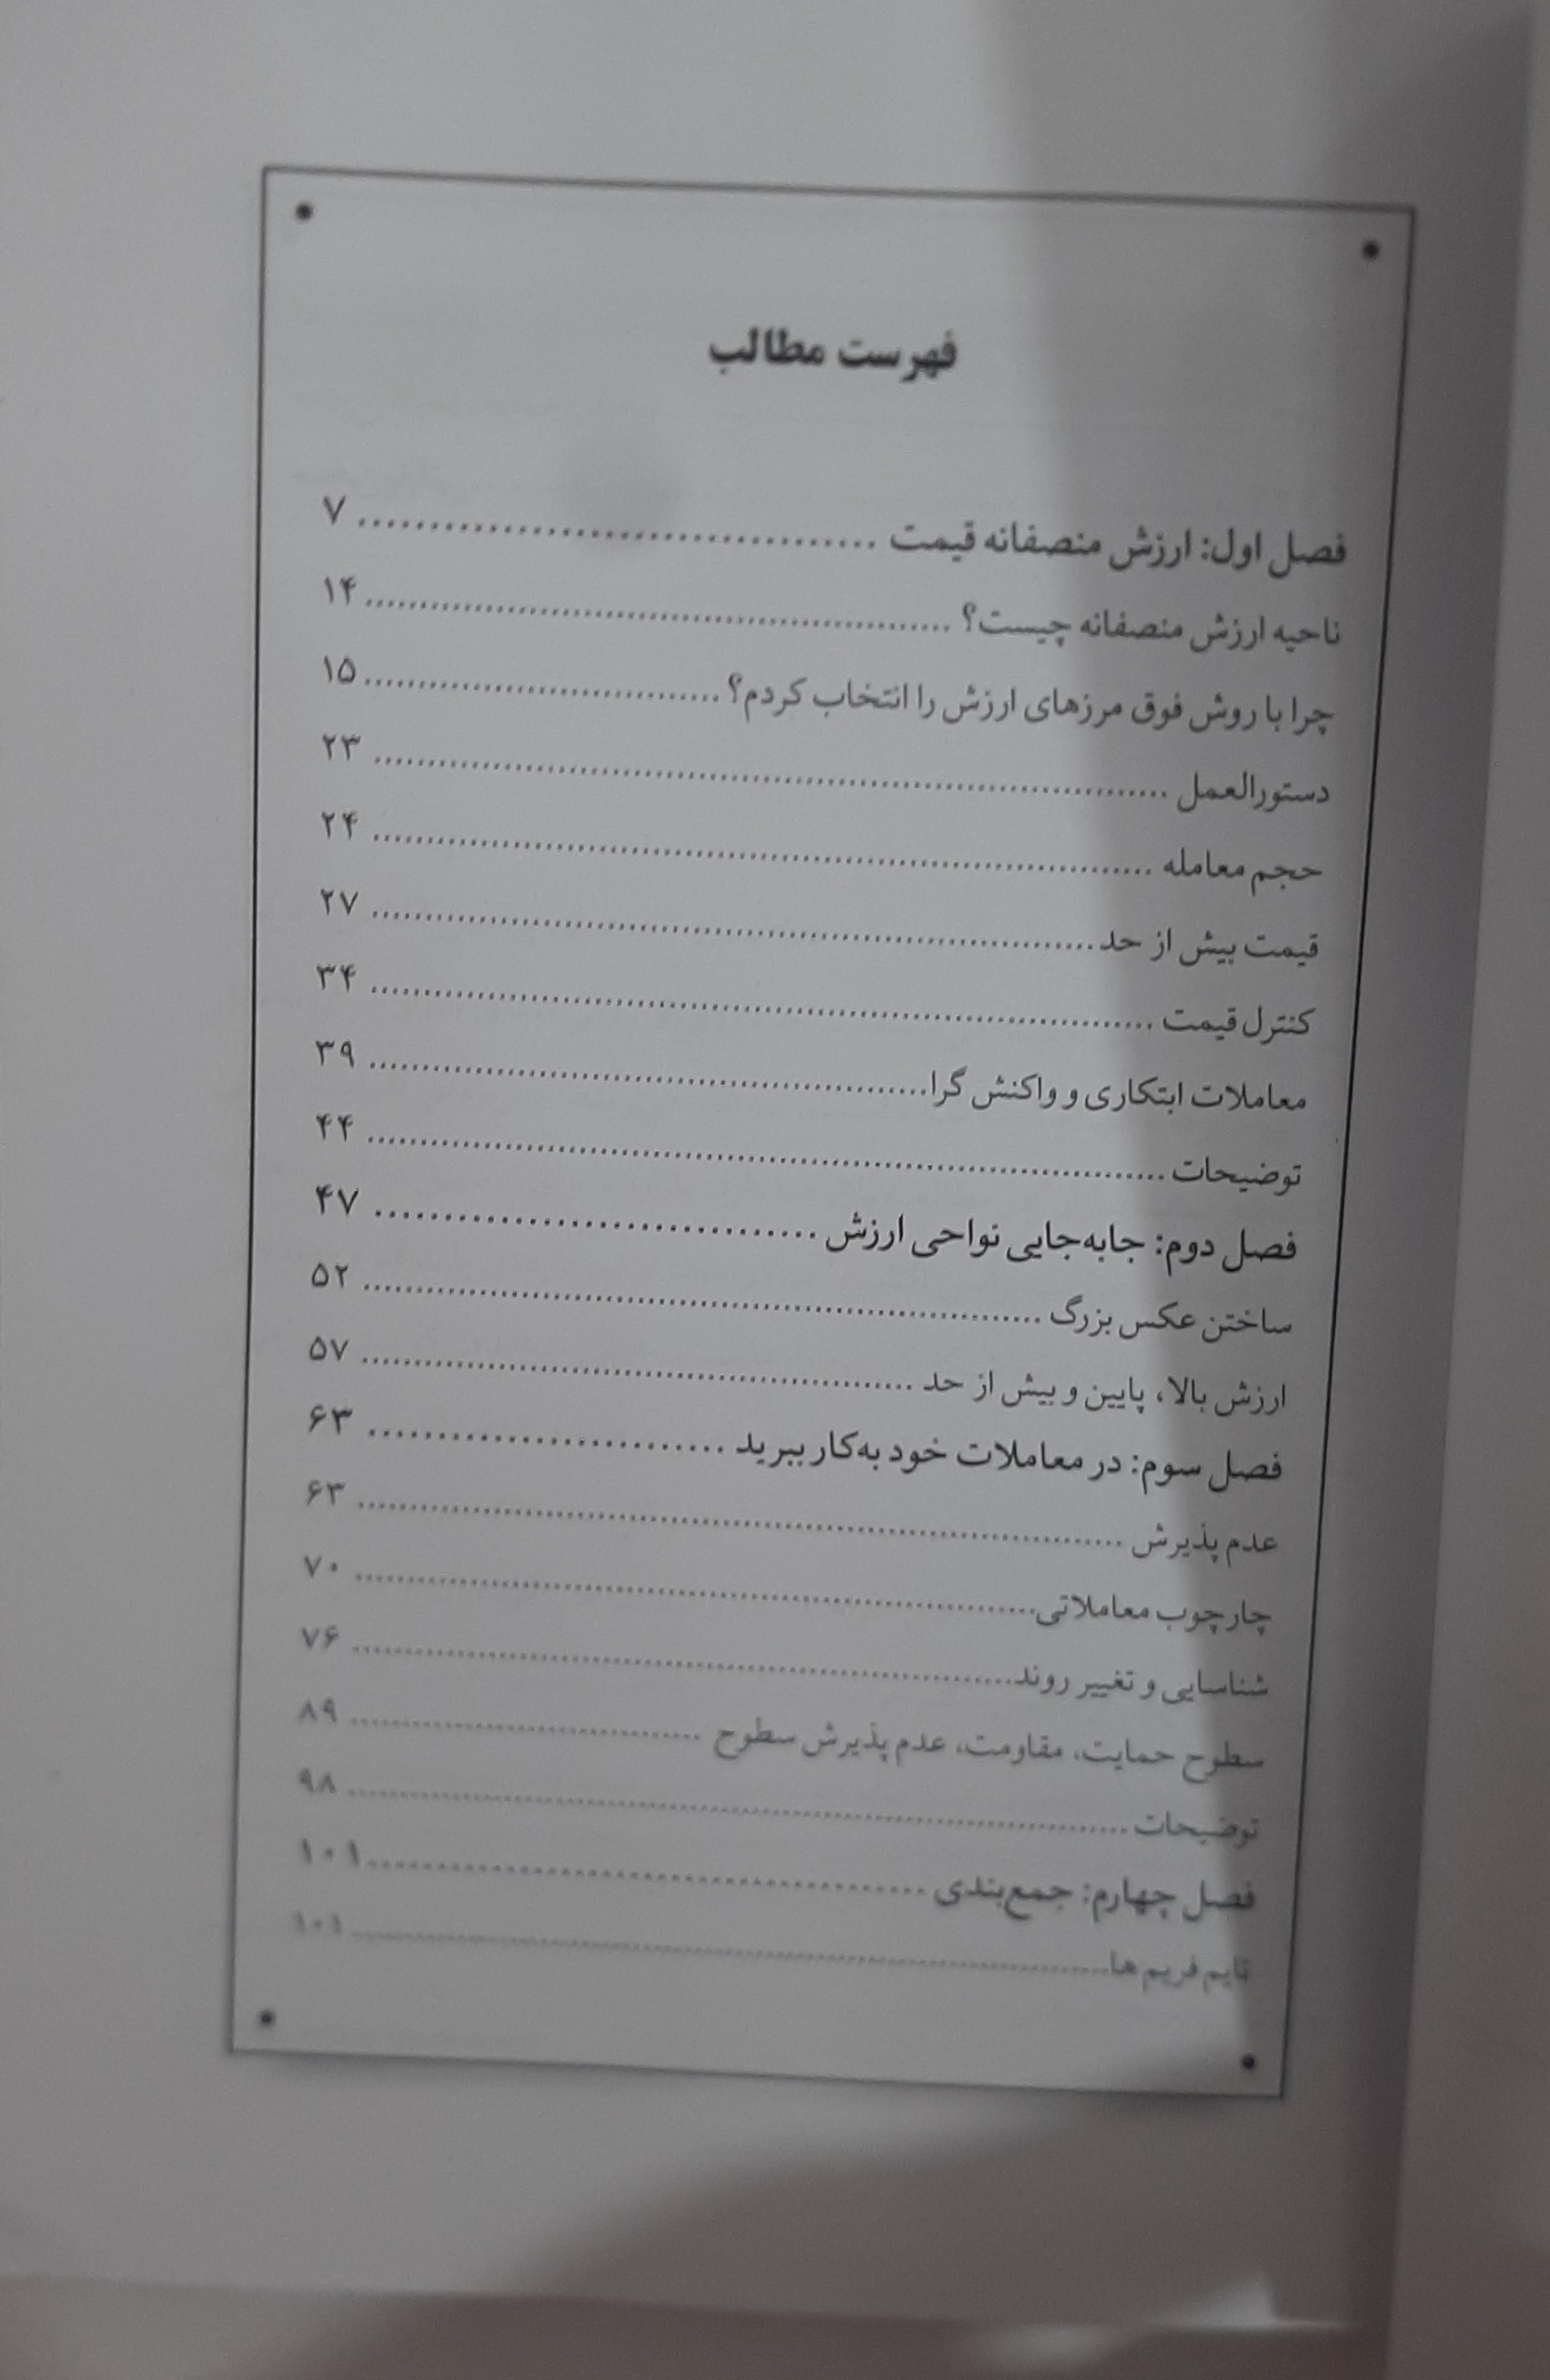 فهرست مطالب
فصل اول: ارزش منصفانه قیمت ........ ۷
ناحیه ارزش منصفانه چیست؟ ........ ۱۴
چرا با روش فوق مرزهای ارزش را انتخاب کردم؟ ........ ۱۵
دستورالعمل ........ ۲۳
حجم معامله ........ ۲۴
قیمت بیش از حد ........ ۲۷
کنترل قیمت ........ ۳۴
معاملات ابتکاری و واکنش گرا ........ ۳۹
توضیحات ........ ۴۴
فصل دوم: جابه‌جایی نواحی ارزش ........ ۴۷
ساختن عکس بزرگ ........ ۵۲
ارزش بالا، پایین و بیش از حد ........ ۵۷
فصل سوم: در معاملات خود به‌کار ببرید ........ ۶۳
عدم پذیرش ........ ۶۳
چارچوب معاملاتی ........ ۷۰
شناسایی و تغییر روند ........ ۷۶
سطوح حمایت، مقاومت، عدم پذیرش سطوح ........ ۸۹
توضیحات ........ ۹۸
فصل چهارم: جمع‌بندی ........ ۱۰۱
تایم فریم ها ........ ۱۰۱